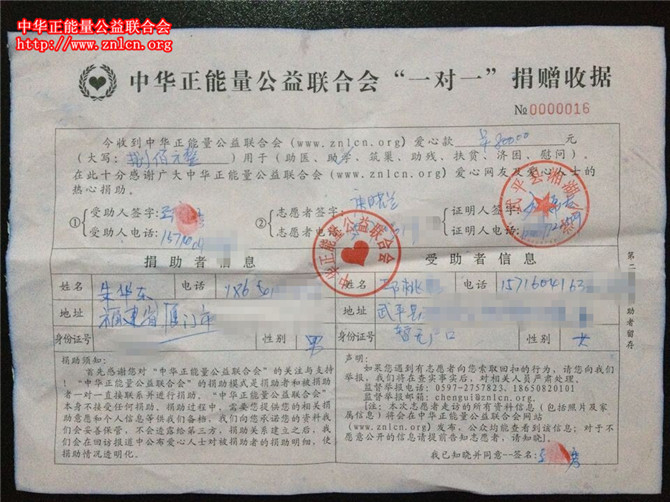 中华正能量公益联合会
http://www.znlcn.org
中华正能量公益联合会“一对一”捐赠收据
№0000016
今收到中华正能量公益联合会(www.znlcn.org)爱心款 元
(大写: 捌佰元整)用于(助医、助学、筑巢、助残、扶贫、济困、慰问)。
在此十分感谢广大中华正能量公益联合会(www.znlcn.org)爱心网友及爱心人士的
热心捐助。
①受助人签字:
受助人电话:
②志愿者签字:
志愿者电话:
证明人签字:
证明人电话:
中华正能量公益联合会
捐助者信息
姓名 朱华东 电话 186
地址 福建省厦门市
身份证号 性别 男
受助者信息
姓名 电话
地址 武平县
身份证号 暂无户口 性别 女
捐助须知:
首先感谢您对“中华正能量公益联合会”的关注与支持
!“中华正能量公益联合会”的捐助模式是捐助者和被捐助
者一对一直接联系并进行捐助。“中华正能量公益联合会”
本身不接受任何捐助。捐助过程中，需要您提供您的相关捐
助意愿和个人信息等供我们备档。我们向您承诺您的资料我
们会妥善保管，不会透露给第三方，捐助关系建立之后，我们
会在回访报道中公布爱心人士对被捐助者的捐助明细，使
捐助情况透明化。
声明:
如果您遇到有志愿者向您索取回扣的行为，请您向我们
举报，我们将在查实事实后，对相关人员严肃处理。
监督举报电话: 0597-2757823、18650820101
监督举报邮箱: chengui@znlcn.org.
(注: 本次志愿者走访的所有资料信息(包括照片及家
属信息)将会在中华正能量公益联合会网站
(www.znlcn.org)发布，公众均能查看到该信息; 对于不
愿意公开的信息请提前告知志愿者，请知晓)。
我已知晓并同意--签名: